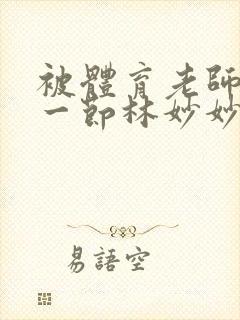 被體育老師
一節林妙妙
易語空